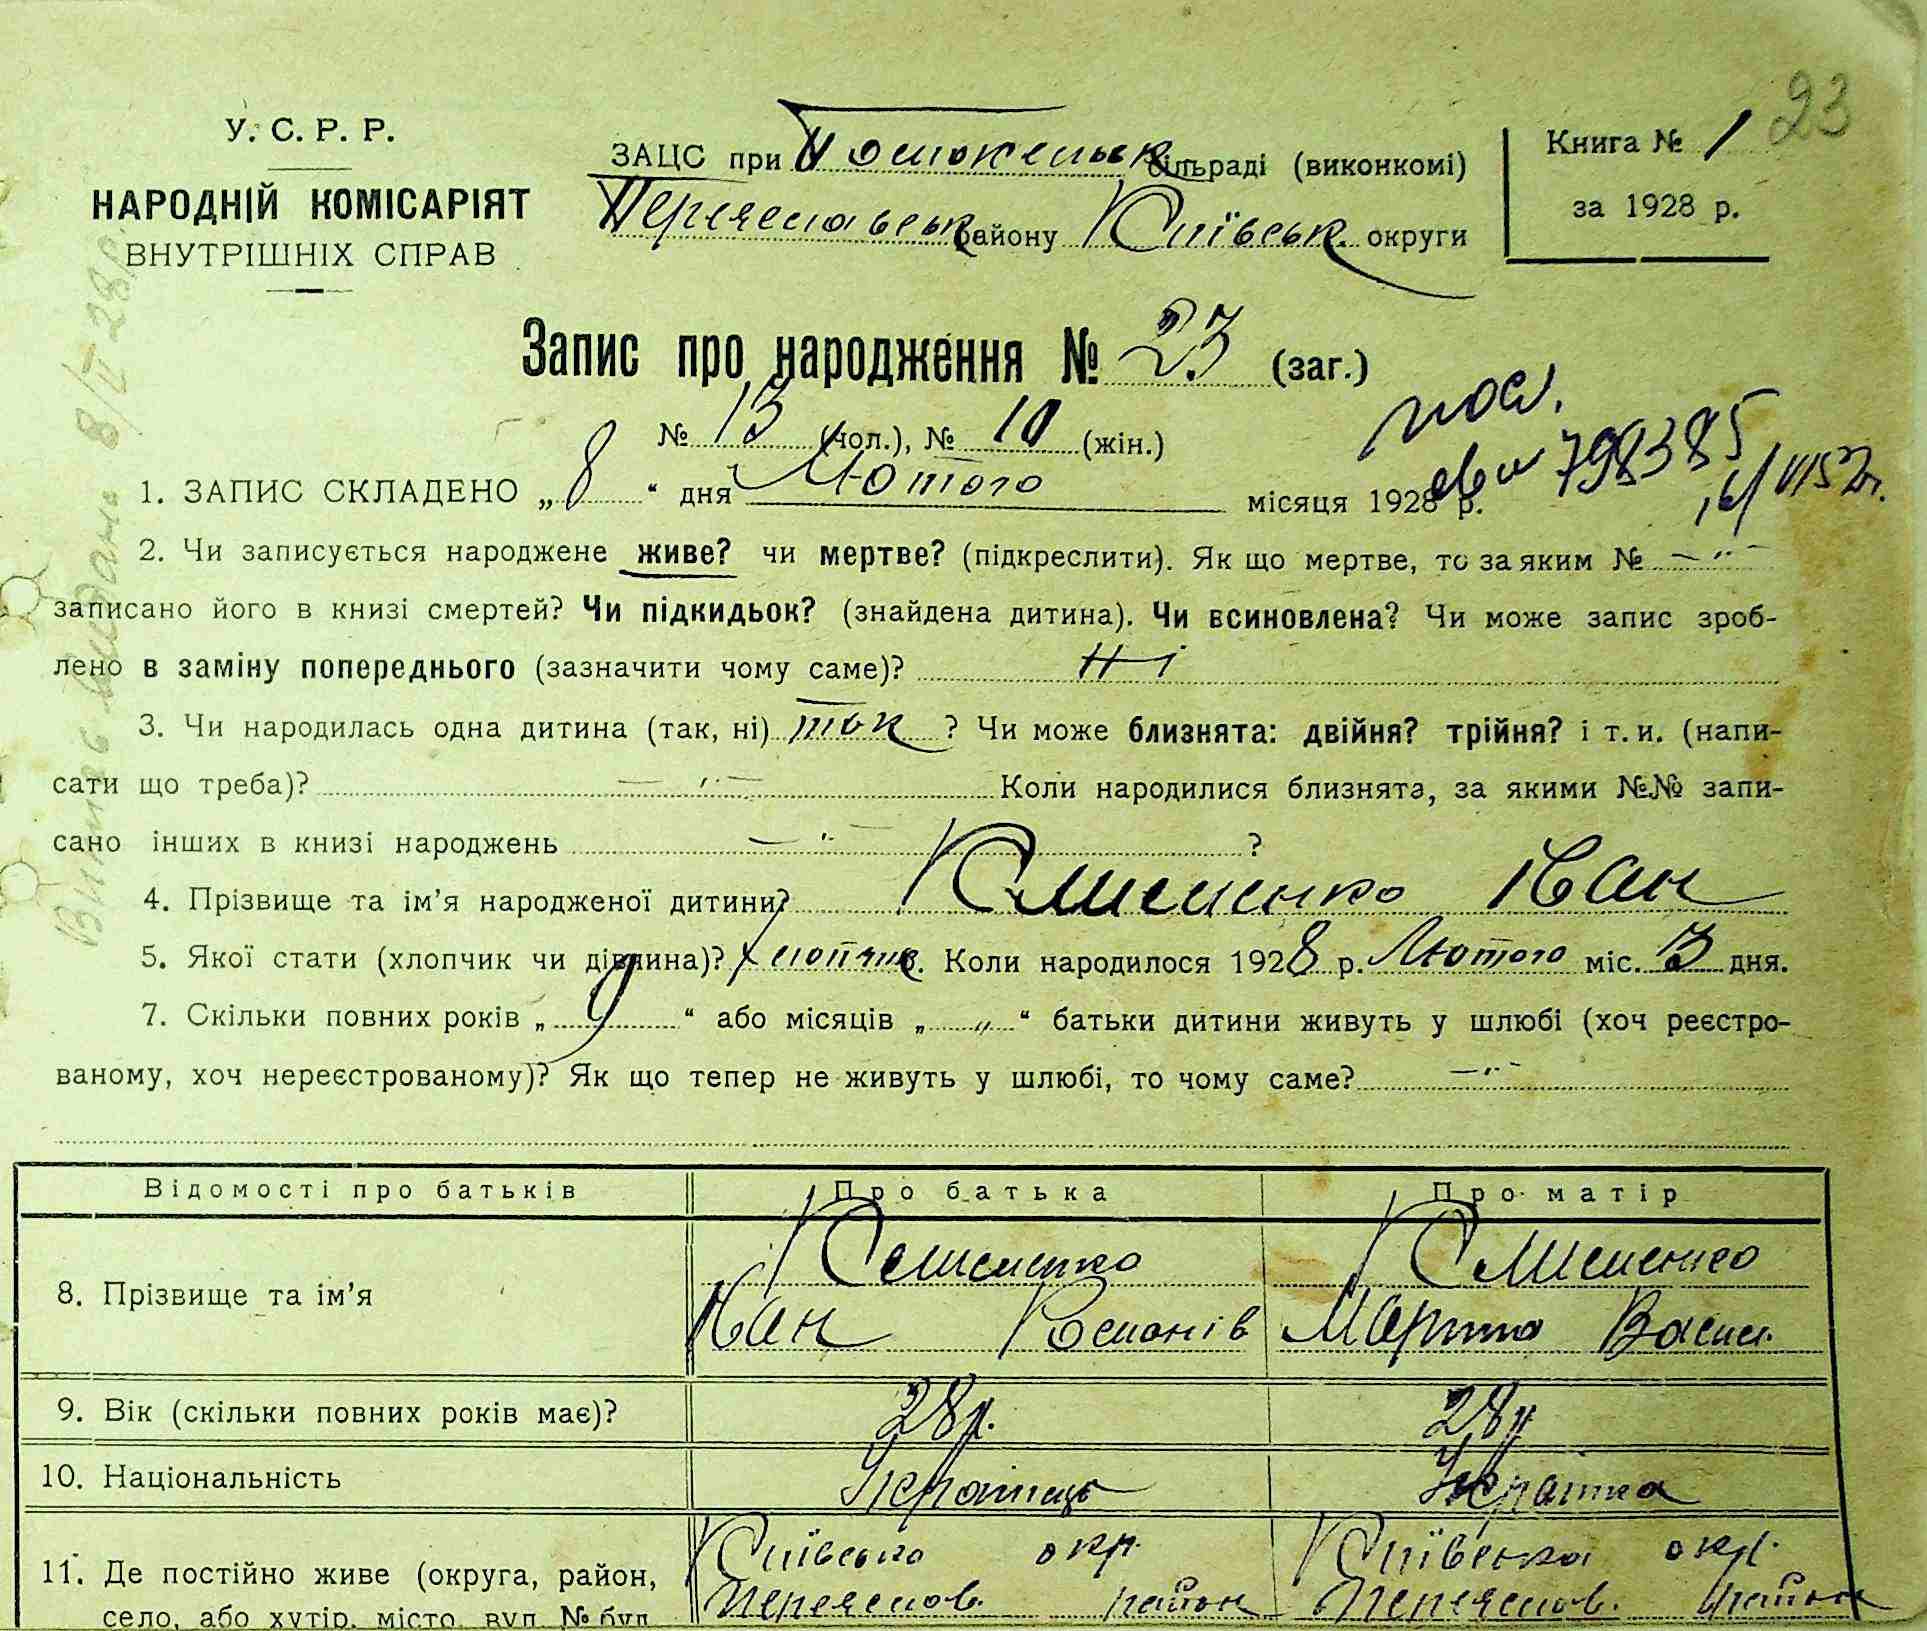 23
У. С. Р. Р.
НАРОДНІЙ КОМІСАРІЯТ
ВНУТРІШНІХ СПРАВ
ЗАЦС при сільраді (виконкомі)
Переяславськ району Київськ. округи
Книга № 1
за 1928 р.
Запис про народження № 23 (заг.)
№ 13 (чол.), № 10 (жін.)
1. ЗАПИС СКЛАДЕНО „ 8 “ дня Лютого місяця 1928 р.
798385
2. Чи записується народжене живе? чи мертве? (підкреслити). Як що мертве, то за яким № — „ —
записано його в книзі смертей? Чи підкидьок? (знайдена дитина). Чи всиновлена? Чи може запис зроб-
лено в заміну попереднього (зазначити чому саме)? Ні
3. Чи народилась одна дитина (так, ні) так ? Чи може близнята: двійня? трійня? і т. и. (напи-
сати що треба)? — „ — Коли народилися близнята, за якими №№ запи-
сано інших в книзі народжень — „ — ?
4. Прізвище та ім’я народженої дитини? Клименко Іван
5. Якої стати (хлопчик чи дівчина)? хлопчик. Коли народилося 1928 р. Лютого міс. 3 дня.
7. Скільки повних років „ 9 “ або місяців „ „ “ батьки дитини живуть у шлюбі (хоч реєстро-
ваному, хоч нереєстрованому)? Як що тепер не живуть у шлюбі, то чому саме? — „ —
Відомості про батьків Про батька Про матір
8. Прізвище та ім’я Клименко Іван Клименко Марта Васил.
9. Вік (скільки повних років має)? 28р. 28р
10. Національність Українець Українка
11. Де постійно живе (округа, район, Київська окр. Київська окр.
село, або хутір, місто, вул. № буд. Переяслов. район Переяслов. район